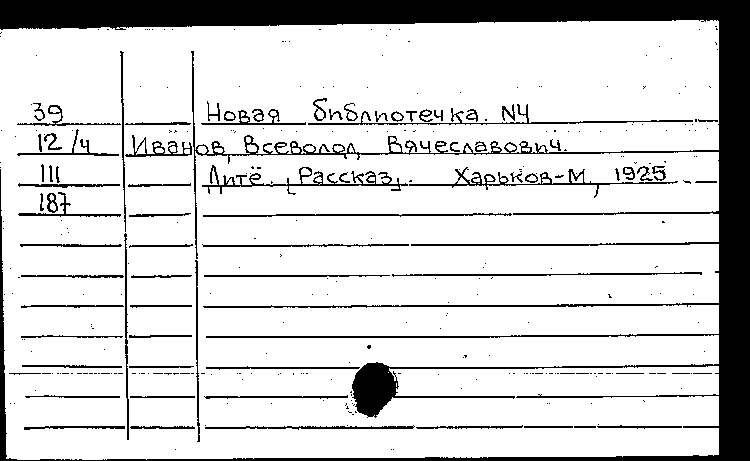 39 Новая библиотечка. N4
12/4 Иванов, Всеволод Вячеславович.
111 Дитё. [Рассказ]. Харьков-М, 1925
187